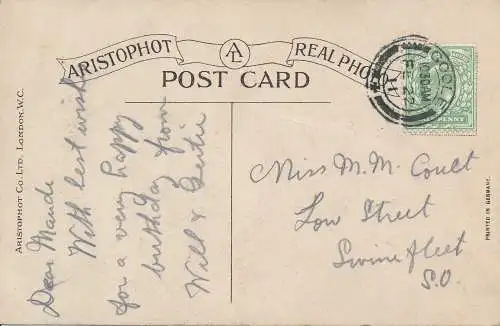 ARISTOPHOT
REAL PHOTO
POST CARD
ARISTOPHOT CO. LTD. LONDON, W.C.
Dear Maude
With best wishes
for a very happy
birthday from
Will & Gertie
GOOLE
PENNY
Miss M. M. Coult
Low Street
Swinefleet
S.O.
PRINTED IN GERMANY.